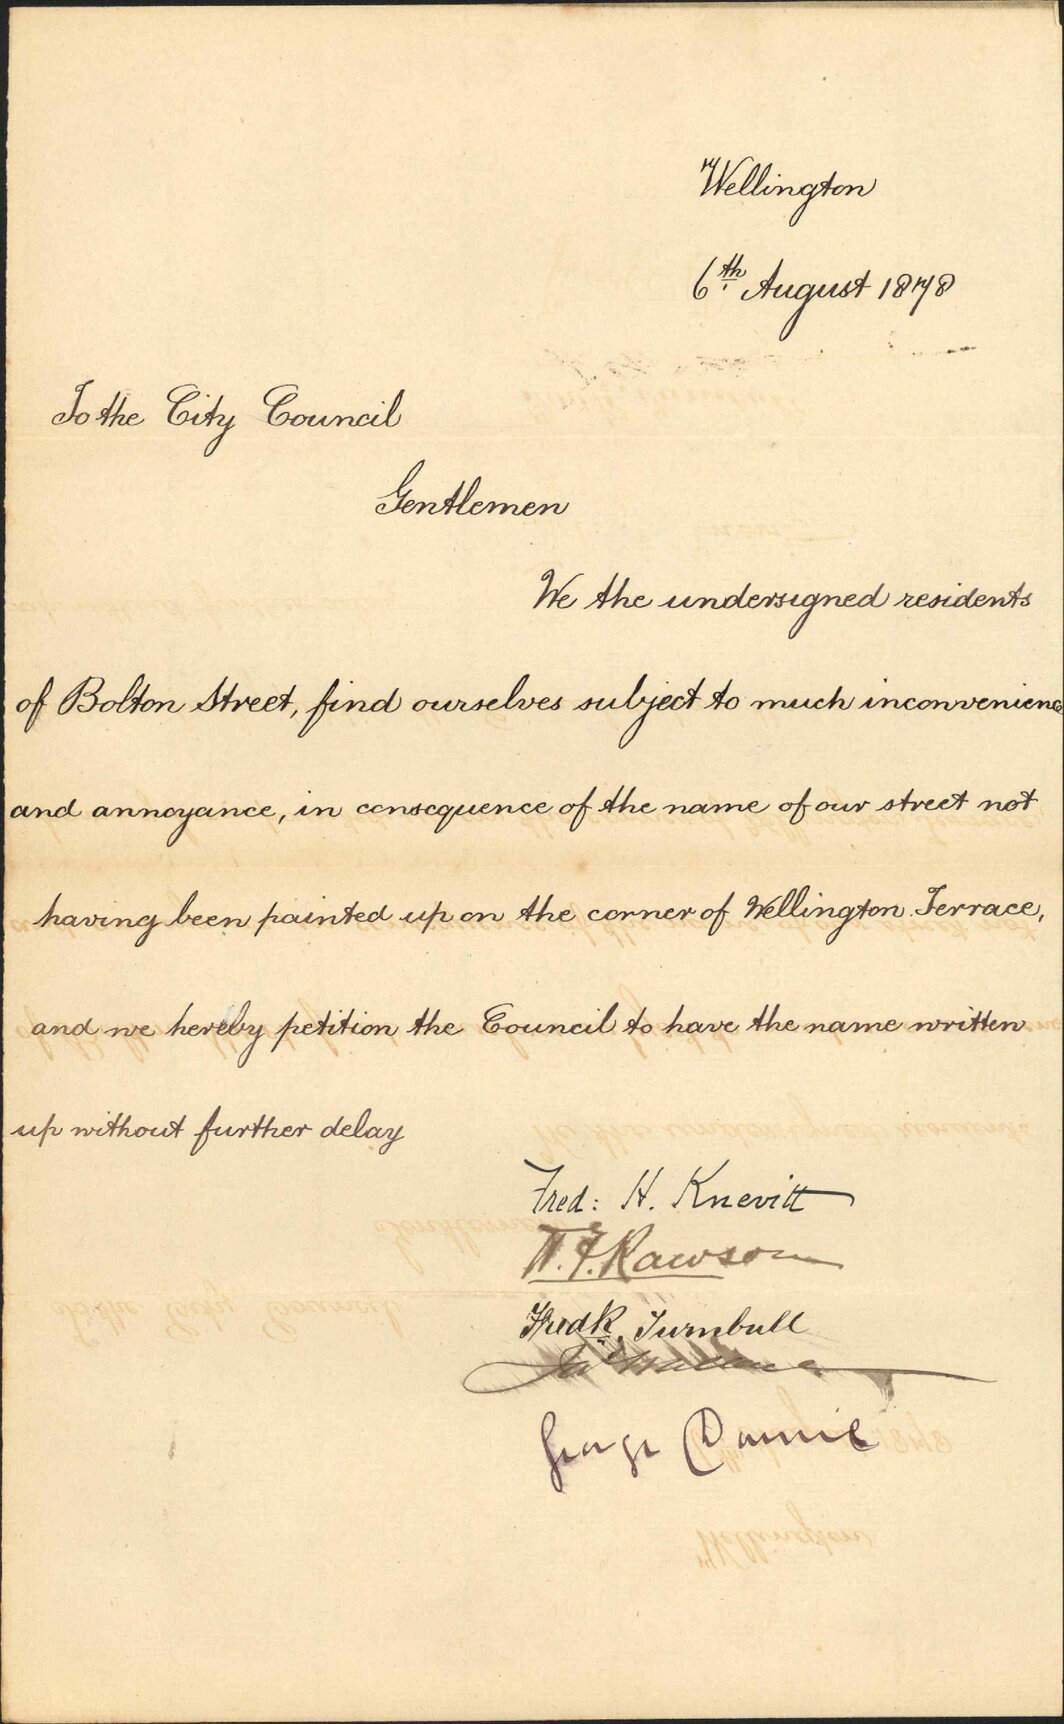 Wellington
6th August 1878
To the City Council
Gentlemen
We the undersigned residents
of Bolton Street, find ourselves subject to much inconvenience
and annoyance, in consequence of the name of our street not
having been painted up on the corner of Wellington Terrace,
and we hereby petition the Council to have the name written
up without further delay
Fred: H. Knevitt
W. F. Rawson
Fredk. Turnbull
George